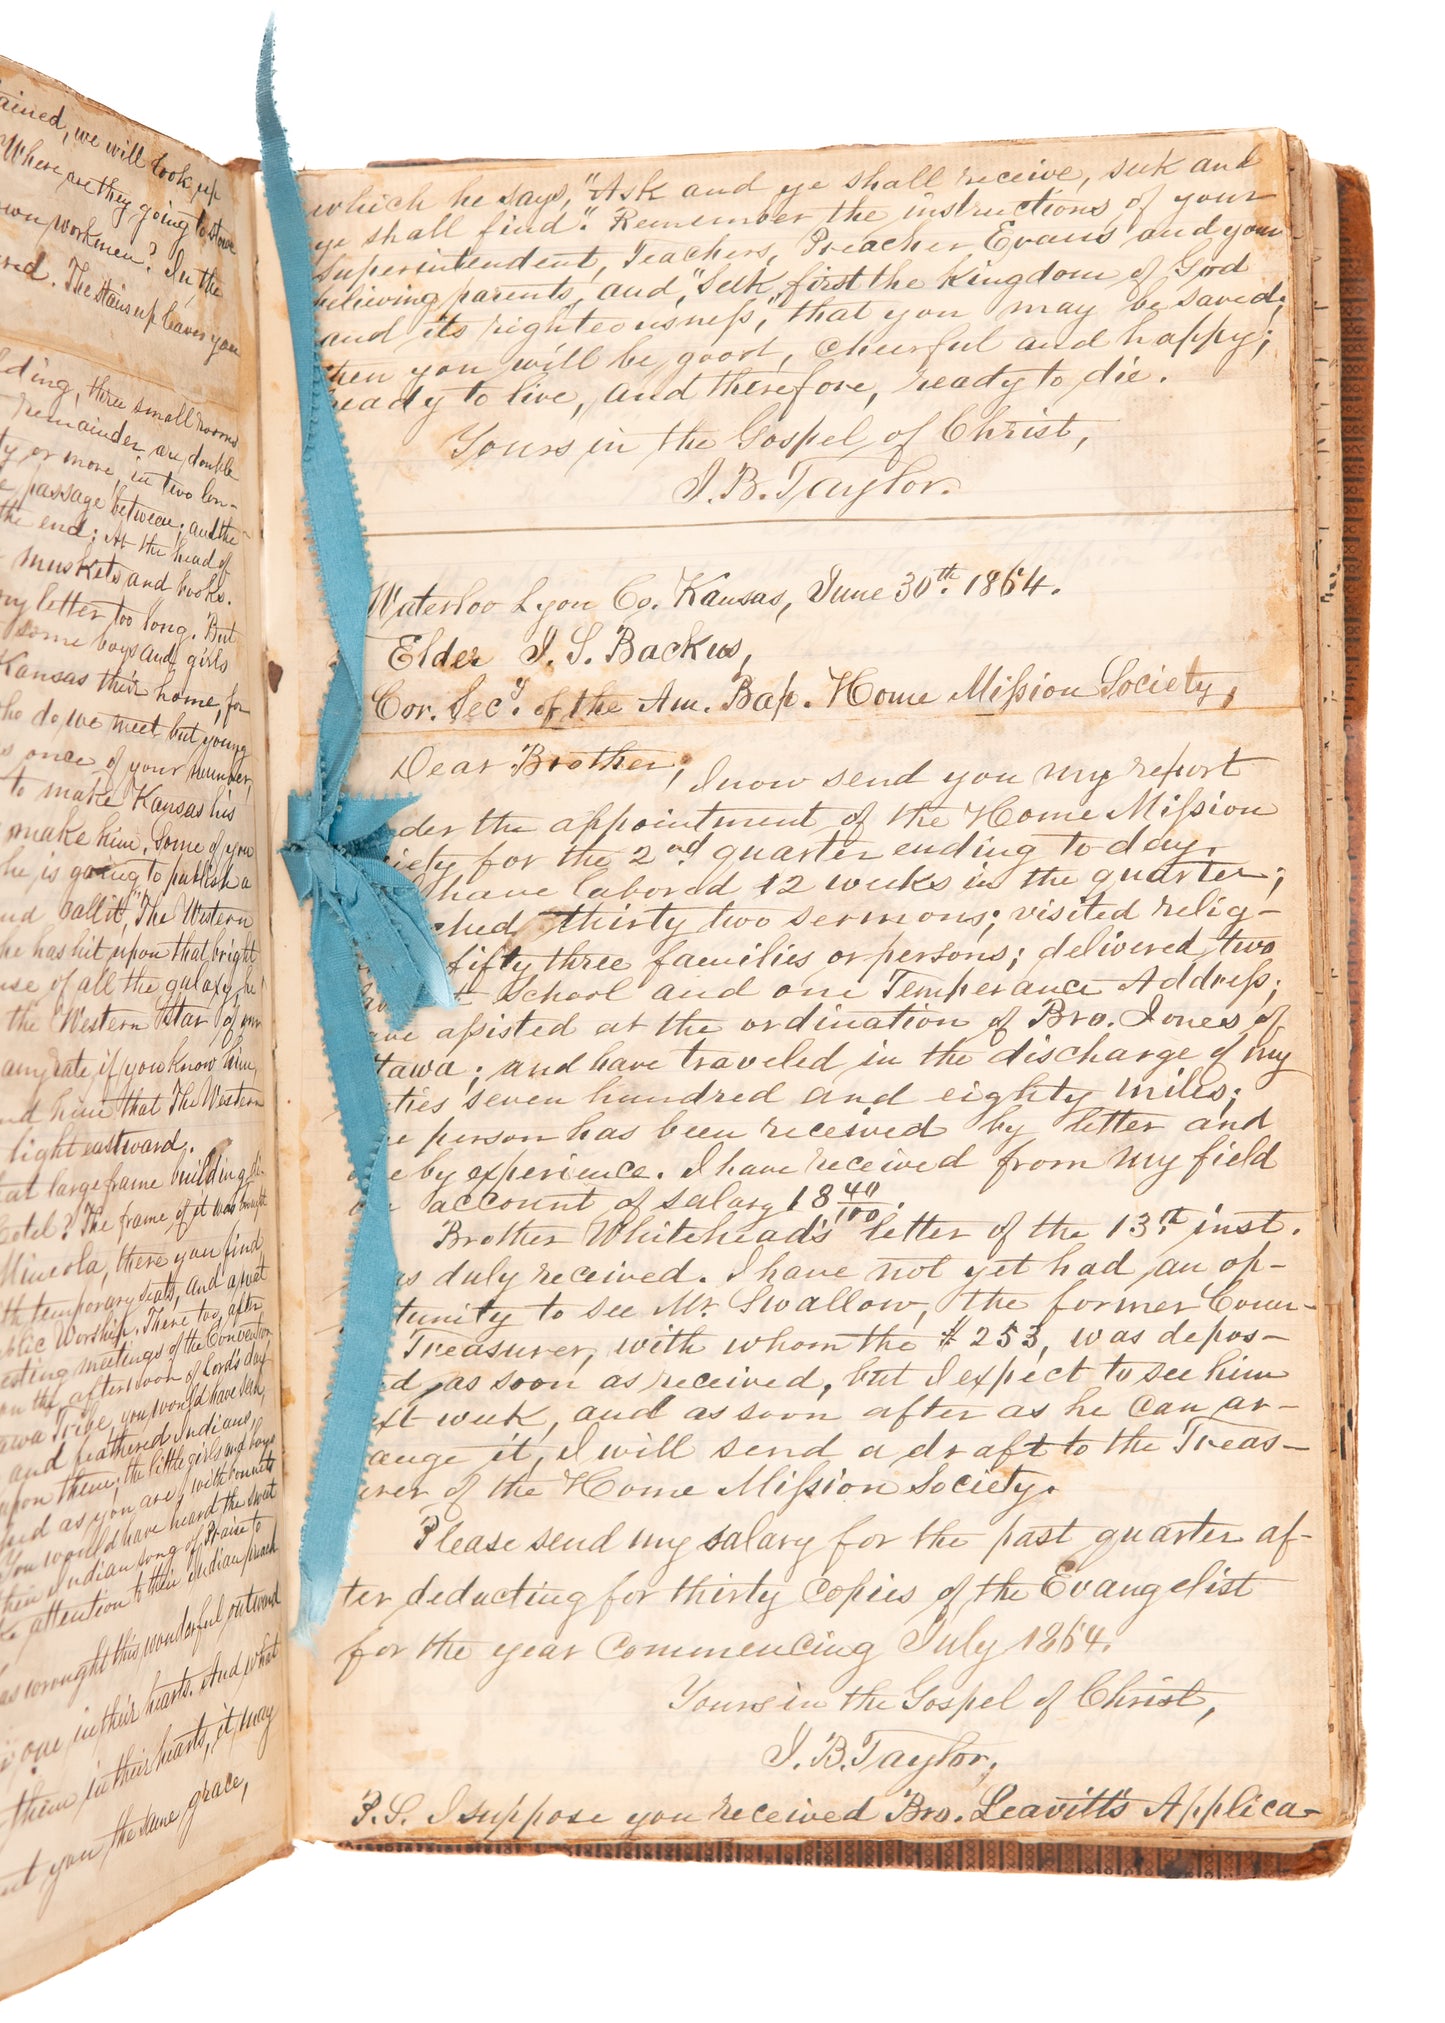 ained, we will look up
Where are they going to stow
own workmen? In the
red. The stairs up leaves you
lding, three small rooms
remainder are double
ty or more, in two lon-
e passage between; and the
the end: At the head of
muskets and books.
my letter too long. But
some boys and girls
Kansas their home, for
ho do we meet but young
s once of your number,
to make Kansas his
make him. Some of you
he is going to publish a
nd call it, "The Western
he has hit upon that bright
use of all the galaxy, he
the Western Star of our
any rate, if you know him,
nd him that The Western
light eastward.
at large frame building
otel? The frame of it was brought
Mineola, there you find
th temporary seats, and a neat
blic Worship. There too, after
esting meetings of the Convention
on the afternoon of Lord's day
awa Tribe, you would have seen,
and feathered Indians,
upon them; the little girls and boys
ed as you are, with bonnets
You would have heard the sweet
their Indian song of Praise to
ke attention to their Indian preach
as wrought this wonderful outward
one in their hearts. And what
them in their hearts, it may
nt you the same grace,
which he says, "Ask and ye shall receive, seek and
ye shall find". Remember the instructions of your
Superintendent, Teachers, Preacher Evans and your
believing parents, and, "Seek first the Kingdom of God
and its righteousness," that you may be saved;
then you will be good, cheerful and happy;
ready to live, and therefore, ready to die.
Yours in the Gospel of Christ,
I. B. Taylor.
Waterloo Lyon Co. Kansas, June 30th. 1864.
Elder I. S. Backus,
Cor. Secy. of the Am. Bap. Home Mission Society,
Dear Brother, I now send you my report
der the appointment of the Home Mission
ciety for the 2nd quarter ending to day.
have labored 12 weeks in the quarter;
ched thirty two sermons; visited relig-
fifty three families or persons; delivered two
School and one Temperance Address;
ave assisted at the ordination of Bro. Jones of
tawa; and have traveled in the discharge of my
ties seven hundred and eighty miles;
e person has been received by letter and
e by experience. I have received from my field
account of salary 18 40/100.
Brother Whitehead's letter of the 13th inst.
as duly received. I have not yet had an op-
tunity to see Mr. Swallow, the former Coun-
Treasurer, with whom the $253, was depos-
d, as soon as received, but I expect to see him
ext week, and as soon after as he can ar-
ange it, I will send a draft to the Treas-
urer of the Home Mission Society.
Please send my salary for the past quarter af-
ter deducting for thirty copies of the Evangelist
for the year commencing July 1864.
Yours in the Gospel of Christ,
I. B. Taylor,
P.S. I suppose you received Bro. Leavitt's Applica-